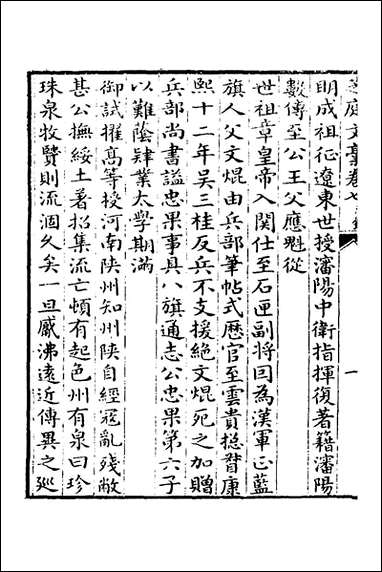 明成祖征遼東世授瀋陽中衛指揮復著籍瀋陽
數傳至公王父應魁從
世祖章皇帝入関仕至石匣副將回為漢軍正藍
旗人父文焜由兵部筆帖式歷官至雲貴總督康
熙十二年吳三桂反兵不支援絕文焜死之加贈
兵部尚書謚忠果事具八旗通志公忠果第六子
以難陰肄業太學期滿
御試擢髙等授河南陝州知州陝自經寇亂殘敝
甚公撫綏土著招集流亡頓有起色州有泉曰珍
珠泉牧贒則流涸久矣一旦觱沸遠近傳異之廵